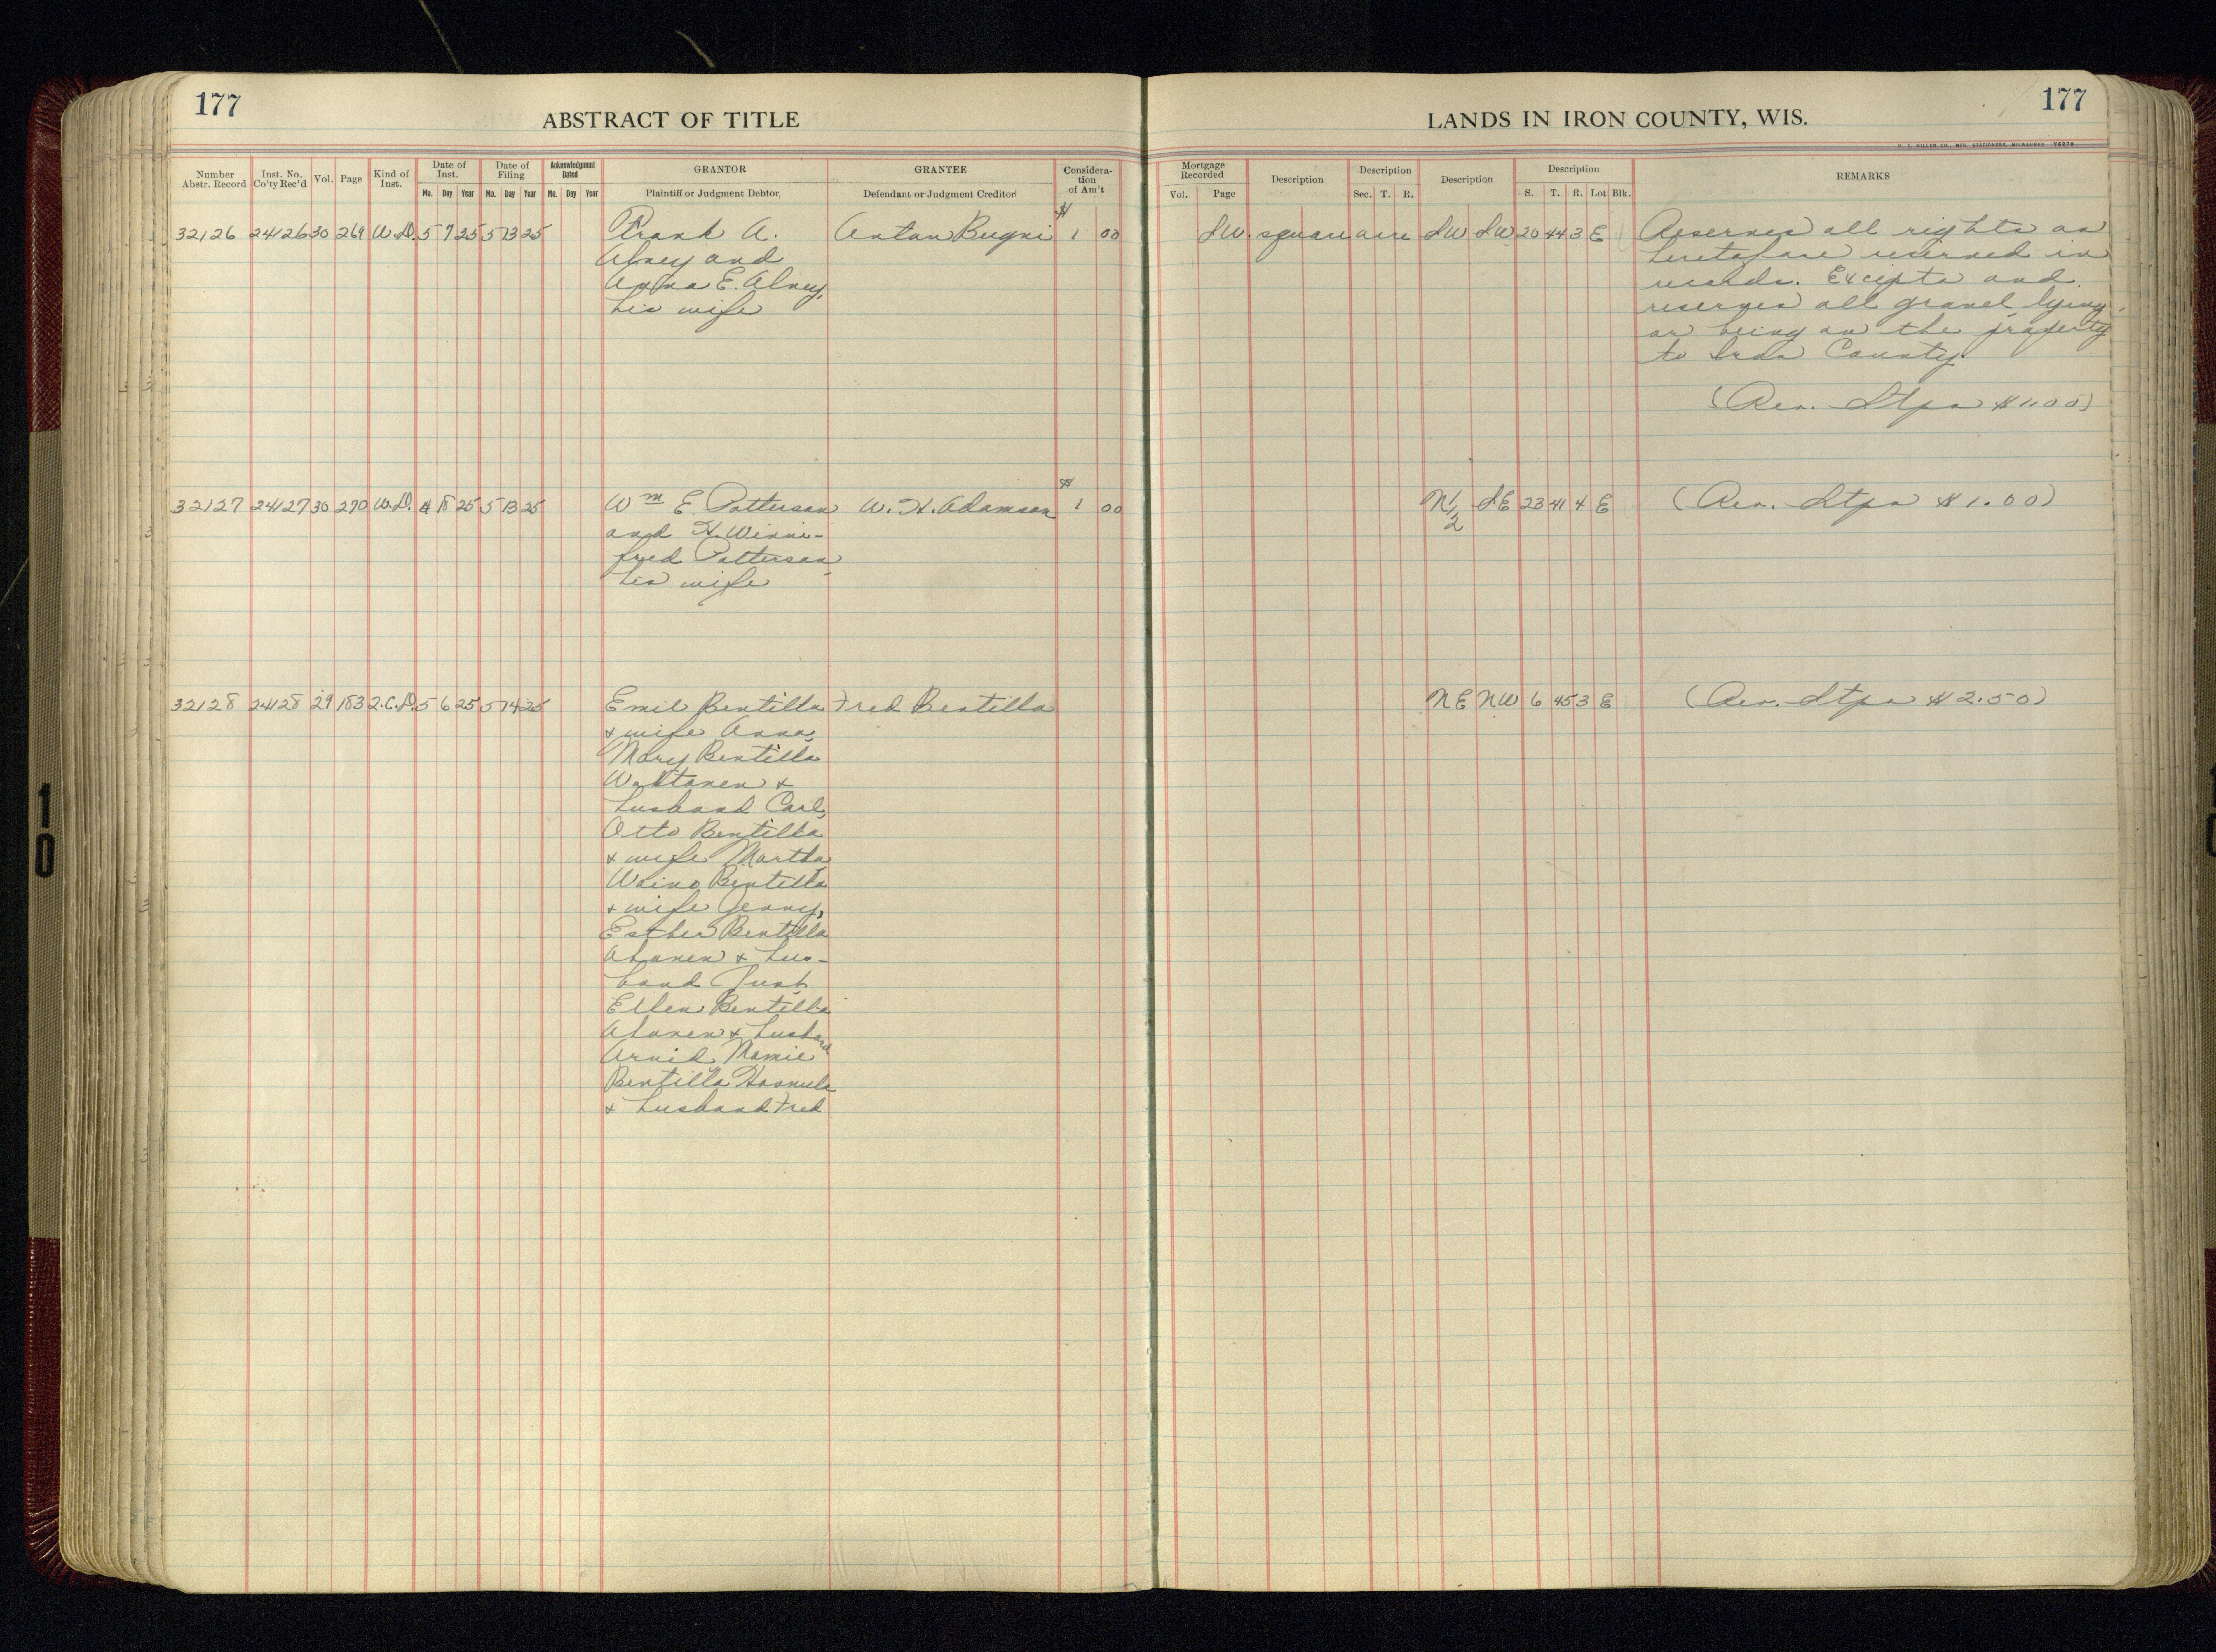 177
ABSTRACT OF TITLE
Number Abstr. Record
Inst. No. Co'ty Rec'd
Vol.
Page
Kind of Inst.
Date of Inst.
Mo. Day Year
Date of Filing
Mo. Day Year
Acknowledgment Dated
Mo. Day Year
GRANTOR
Plaintiff or Judgment Debtor
GRANTEE
Defendant or Judgment Creditor
Considera-
tion
of Am't
32126 24126 30 269 W.D. 5 7 25 5 13 25 Frank A. Anton Bugni $ 1 00
Alney and
Anna E. Alney,
his wife
32127 24127 30 270 W.D. 4 18 25 5 13 25 Wm E. Patterson W. H. Adamson $ 1 00
and H. Winni-
fred Patterson,
his wife
32128 24128 29 183 2.C.D. 5 6 25 5 14 25 Emil Bentilla Fred Bentilla
& wife Anna,
Mary Bentilla
&
husband Carl,
Otto Bentilla
& wife Martha,
Waino Bentilla
& wife Jenny,
Esther Bentilla
Ahonen & hus-
band
Ellen Bentilla
Ahonen & husband
Arvid, Mamie
Bentilla
& husband Fred
LANDS IN IRON COUNTY, WIS.
177
H. C. MILLER CO., MFG. STATIONERS, MILWAUKEE
Mortgage Recorded
Vol. Page
Description
Description
Sec. T. R.
Description
Description
S. T. R. Lot Blk.
REMARKS
SW. square acre SW SW 20 44 3 E Reserves all rights as
heretofore reserved in
records. Excepts and
reserves all gravel lying
or being on the property
to Iron County.
(Rev. Stps $1.00)
N 1/2 SE 23 41 4 E (Rev. Stps $1.00)
NE NW 6 45 3 E (Rev. Stps $2.50)
10